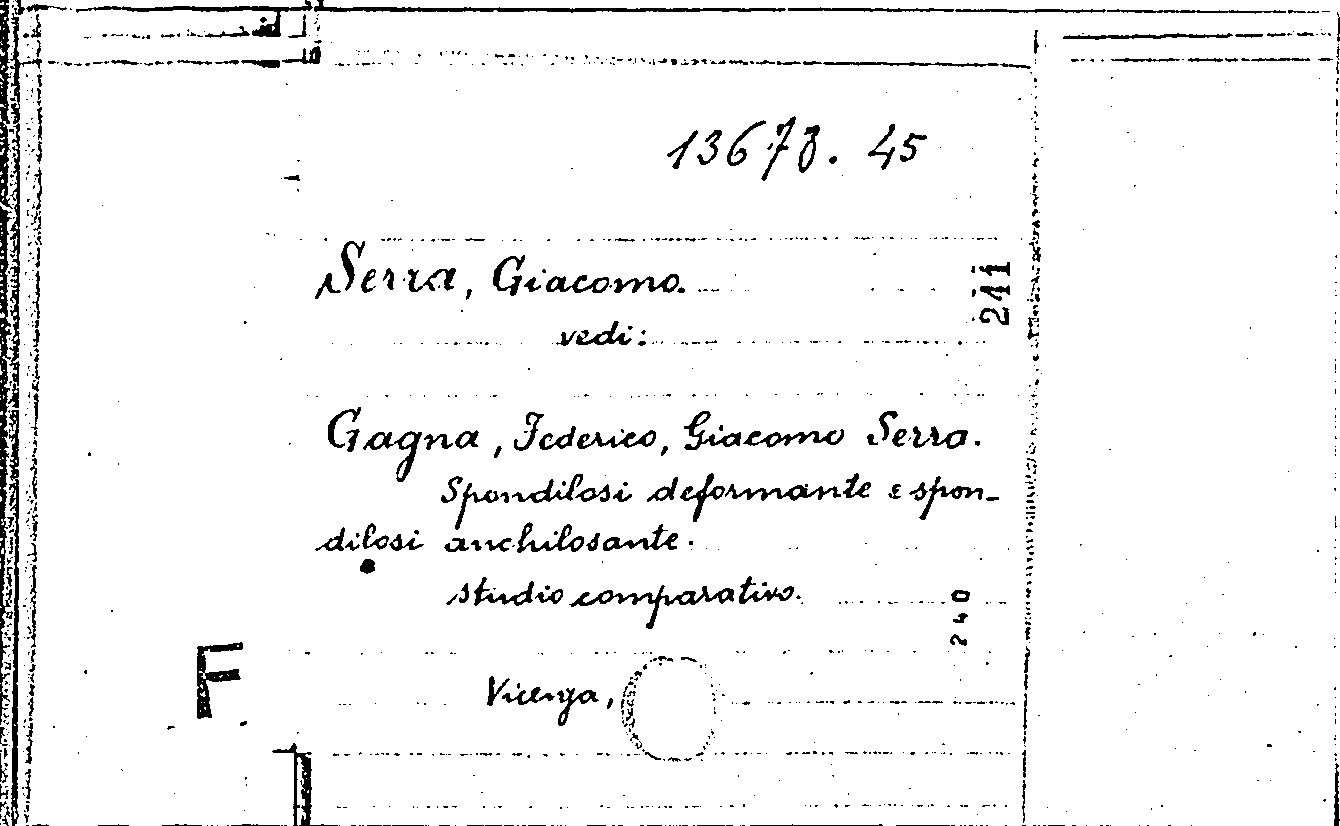 13673. 45
Serra, Giacomo.
vedi:
Gagna, Federico, Giacomo Serra.
Spondilosi deformante e spon-
dilosi anchilosante.
studio comparativo.
Vicenza,
241
240
F